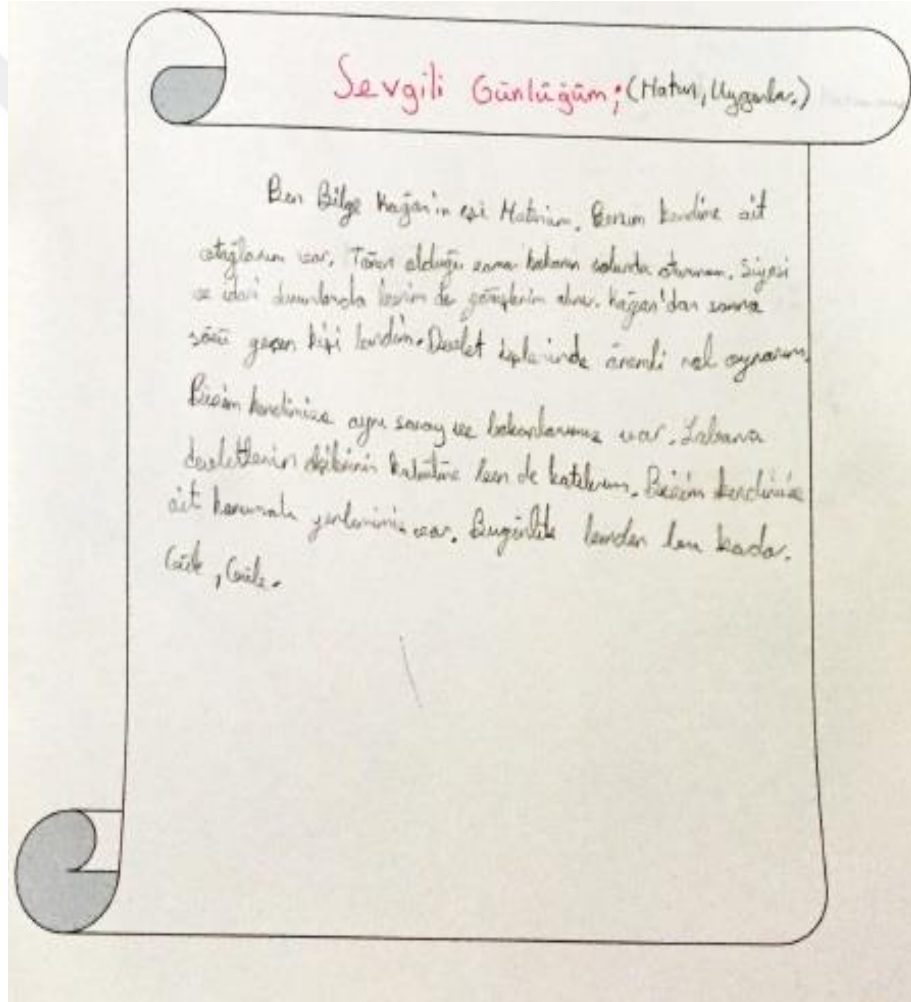 Sevgili Günlüğüm; (Hatun, Uygurlar.)
Ben Bilge Kağan'ın eşi Hatunum. Benim kendime ait
otağlarım var. Tören olduğu zaman hakanın solunda otururum. Siyasi
ve idari durumlarda benim de görüşlerim alınır. Kağan'dan sonra
sözü geçen kişi bendim. Devlet işlerinde önemli rol oynarım.
Bizim kendimize ayrı saray ve var. Yabancı
devletlerin elçilerinin kabulüne ben de katılırım. Bizim kendimize
ait yerlerimiz var. Bugünlük benden bu kadar.
Güle, Güle.